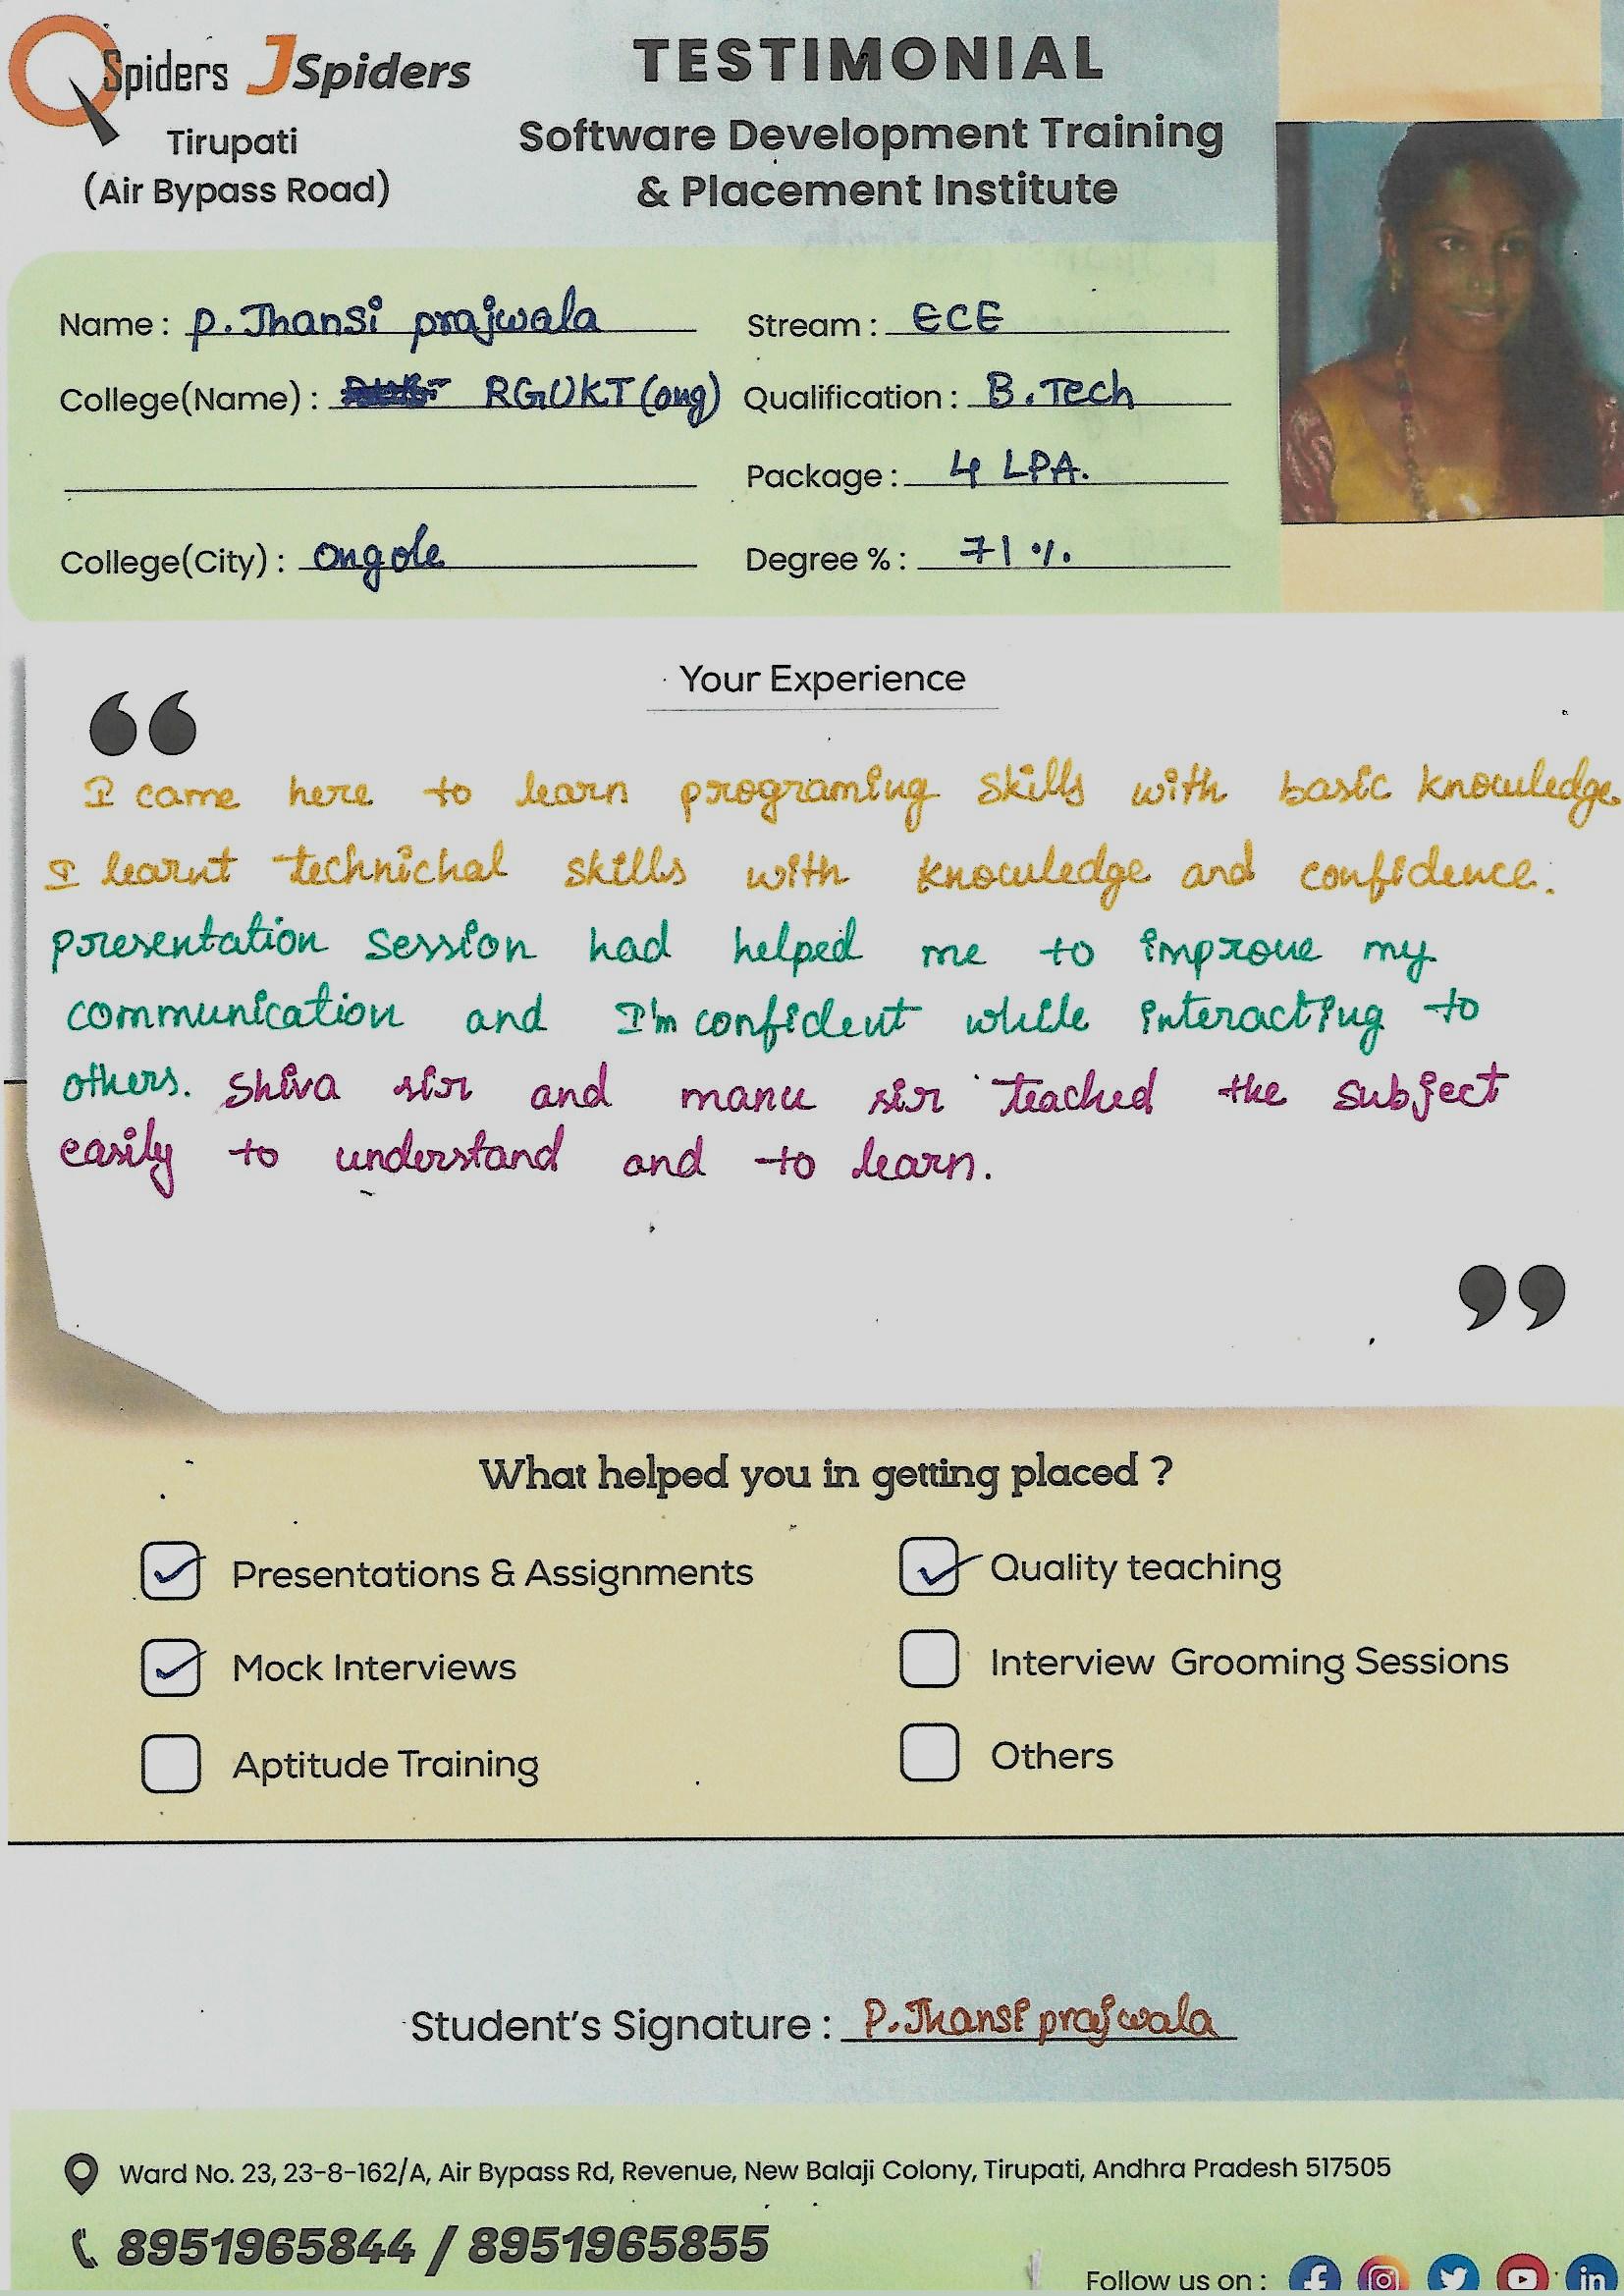 QSpiders JSpiders
Tirupati
(Air Bypass Road)
TESTIMONIAL
Software Development Training
& Placement Institute
Name: P. Jhansi prajwala
Stream: ECE
College(Name): RGUKT (ong)
Qualification: B.Tech
Package: 4 LPA.
College(City): ongole
Degree %: 71%
Your Experience
“
I came here to learn programing skills with basic knowledge.
I learnt technichal skills with knowledge and confidence.
presentation session had helped me to improve my
communication and I'm confident while interacting to
others. Shiva sir and manu sir teached the subject
easily to understand and to learn.
”
What helped you in getting placed ?
Presentations & Assignments
Quality teaching
Mock Interviews
Interview Grooming Sessions
Aptitude Training
Others
Student's Signature: P. Jhansi prajwala
Ward No. 23, 23-8-162/A, Air Bypass Rd, Revenue, New Balaji Colony, Tirupati, Andhra Pradesh 517505
8951965844 / 8951965855
Follow us on :